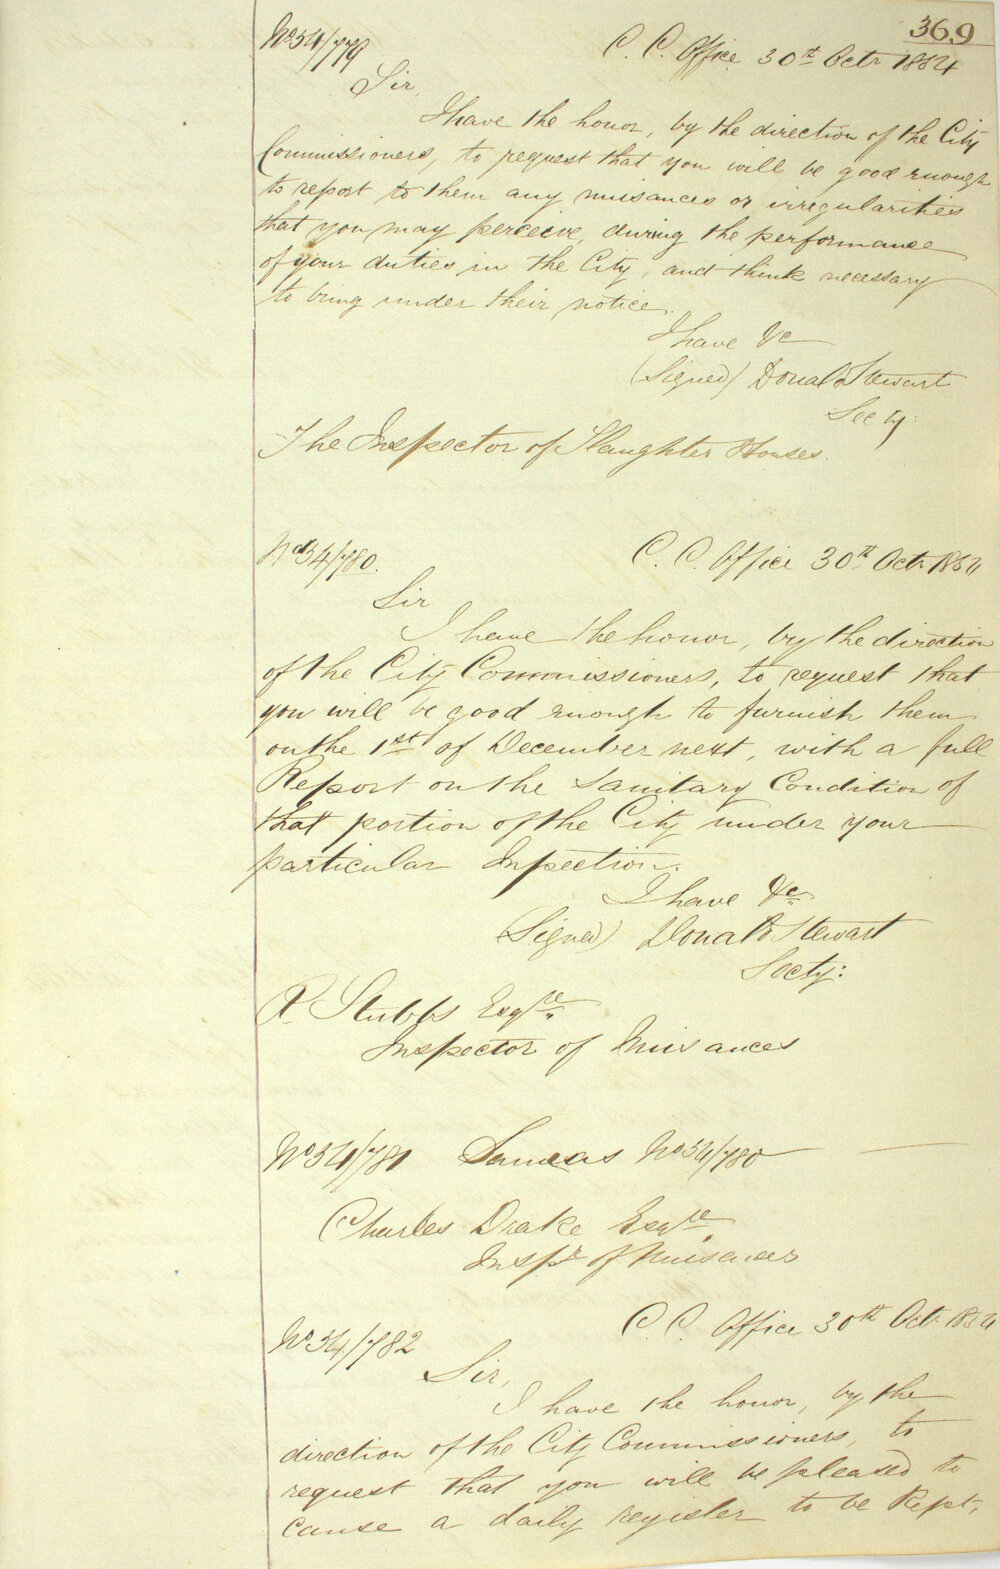 369
No 54/779
C. C. Office 30th Octr 1854
Sir,
I have the honor, by the direction of the City
Commissioners, to request that you will be good enough
to report to them any nuisances or irregularities
that you may perceive, during the performance
of your duties in the City, and think necessary
to bring under their notice.
I have &c
(Signed) Donald Stewart
Secty:
The Inspector of Slaughter Houses.
No 54/780.
C. C. Office 30th Octr 1854
Sir
I have the honor, by the direction
of the City Commissioners, to request that
you will be good enough to furnish them
on the 1st of December next, with a full
Report on the Sanitary Condition of
that portion of the City under your
particular Inspection.
I have &c
(Signed) Donald Stewart
Secty:
R. Stubbs Esqre.
Inspector of Nuisances
No 54/781 Same as No 54/780
Charles Drake Esqre.
Inspr of Nuisances
No 54/782
C. C. Office 30th Oct. 1854
Sir,
I have the honor, by the
direction of the City Commissioners, to
request that you will be pleased to
cause a daily register to be Kept,